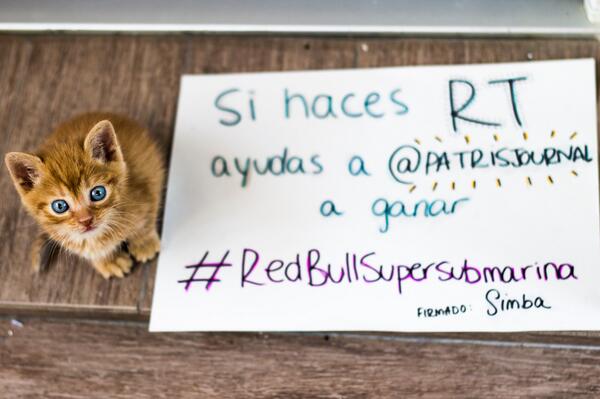 Si haces RT
ayudas a @PATRISJOURNAL
a ganar
#RedBullSupersubmarina
FIRMADO: Simba